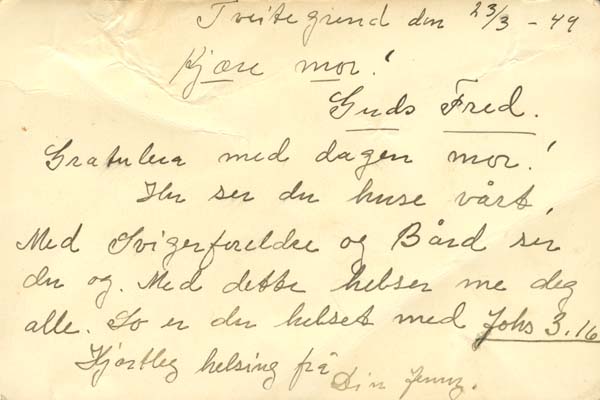 Tveitegrend den 23/3 - 49
Kjære mor!
Guds Fred.
Gratulera med dagen mor!
Her ser du huse vårt,
Med Svigerforeldre og Bård ser
du og. Med dette helser me deg
alle. So er du helset med Johs 3.16
Hjartleg helsing frå Din Jenny.